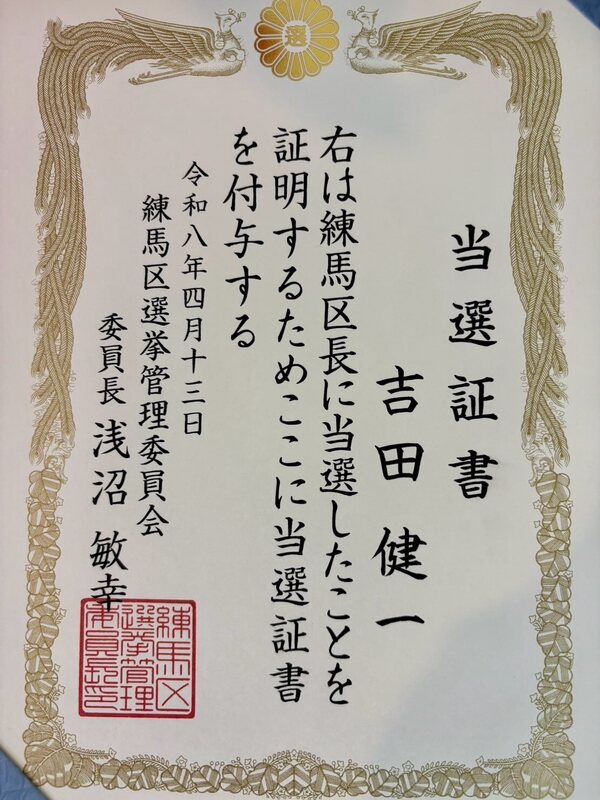 選
当選証書
吉田健一
右は練馬区長に当選したことを
証明するためここに当選証書
を付与する
令和八年四月十三日
練馬区選挙管理委員会
委員長 浅沼敏幸
練馬区
選挙管理
委員長印